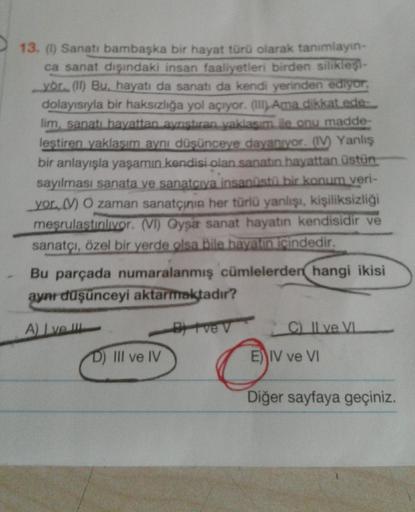 13. (I) Sanatı bambaşka bir hayat türü olarak tanımlayın-
ca sanat dışındaki insan faaliyetleri birden silikleşi-
yor. (II) Bu, hayatı da sanatı da kendi yerinden ediyor;
dolayısıyla bir haksızlığa yol açıyor. (III) Ama dikkat ede-
lim, sanatı hayattan ayrıştıran yaklaşım ile onu madde-
leştiren yaklaşım aynı düşünceye dayanıyor. (IV) Yanlış
bir anlayışla yaşamın kendisi olan sanatın hayattan üstün
sayılması sanata ve sanatçıya insanüstü bir konum veri-
yor. (V) O zaman sanatçının her türlü yanlışı, kişiliksizliği
meşrulaştırılıyor. (VI) Oysa sanat hayatın kendisidir ve
sanatçı, özel bir yerde olsa bile hayatın içindedir.
Bu parçada numaralanmış cümlelerden hangi ikisi
aynı düşünceyi aktarmaktadır?
A) I ve III B) I ve V C) II ve VI
D) III ve IV E) IV ve VI
Diğer sayfaya geçiniz.